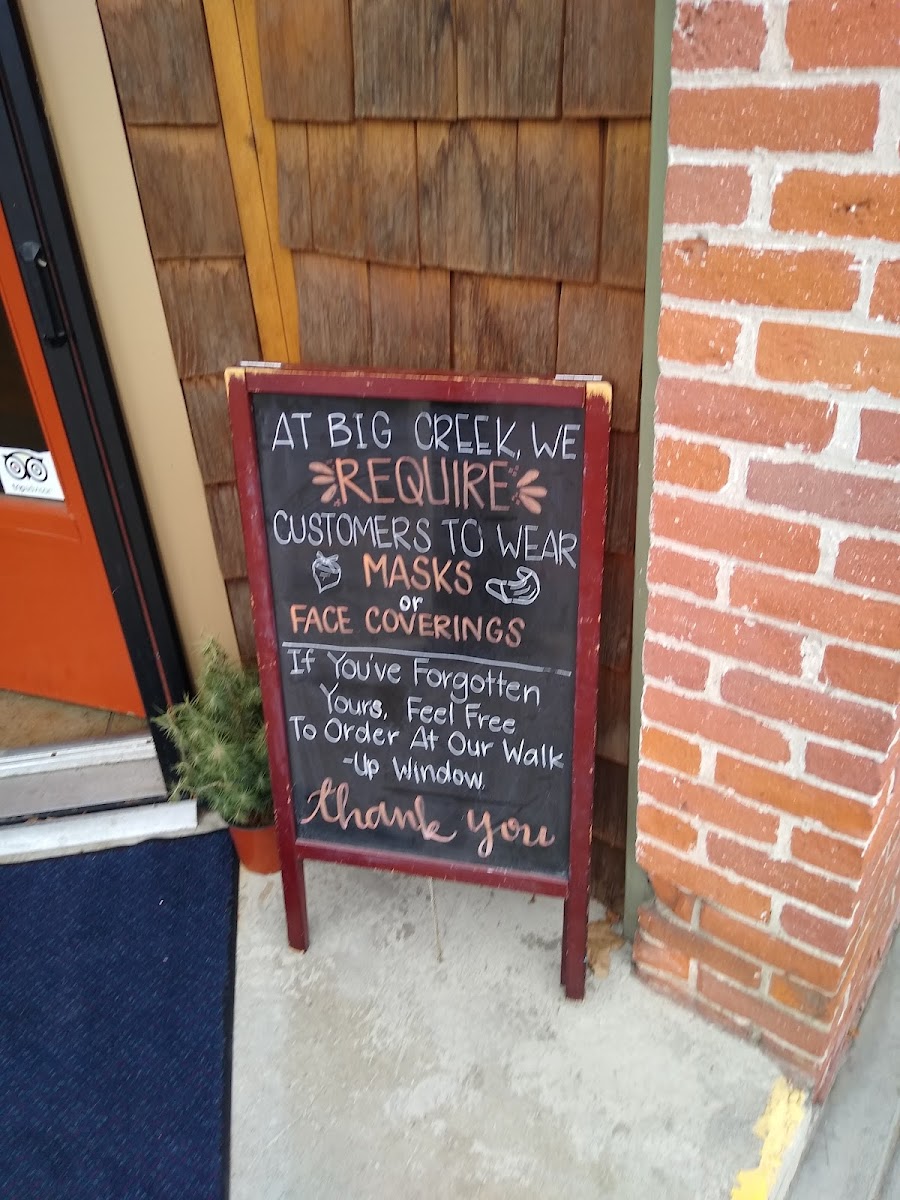 AT BIG CREEK, WE
REQUIRE
CUSTOMERS TO WEAR
MASKS
or
FACE COVERINGS
If You've Forgotten
Yours, Feel Free
To Order At Our Walk
-Up Window.
thank you